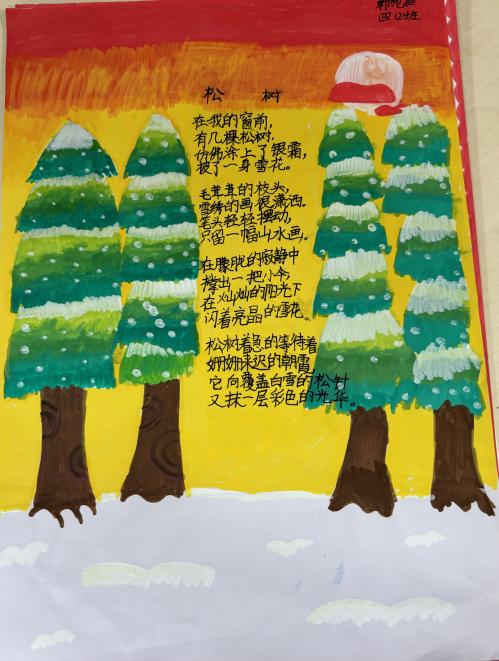 四(2)班
松树
在我的窗前，
有几棵松树，
仿佛涂上了银霜，
披了一身雪花。
毛茸茸的枝头，
雪绣的画很潇洒。
笔头轻轻摆动，
只留一幅山水画。
在朦胧的寂静中
撑出一把小伞
在灿灿的阳光下
闪着亮晶的雪花。
松树着急的等待着
姗姗来迟的朝霞
它向覆盖白雪的松针
又抹一层彩色的光华。